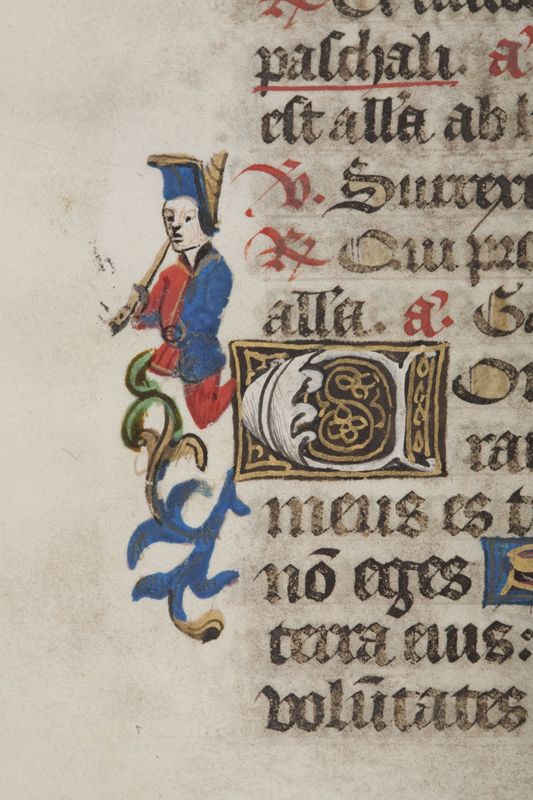 paschali. a'
est all'a ab
℣. Surrexi
℟ Qui pro
all'a. a'. Ga
COn
rau
meus es t
nō eges S
terra eius:
volūtates